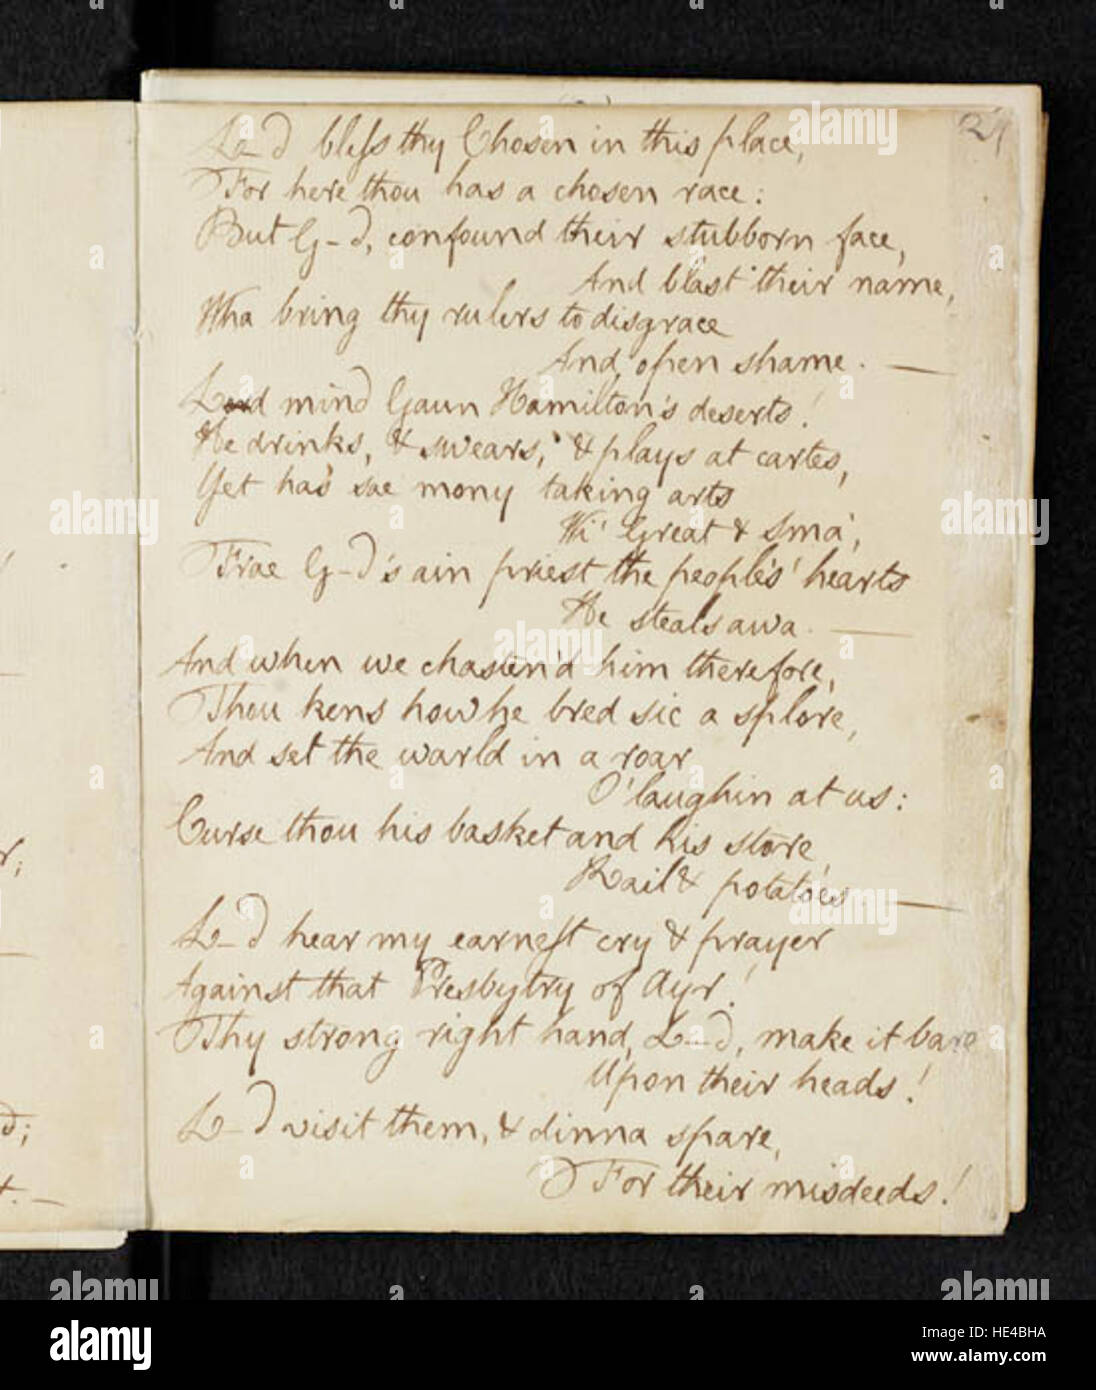 21
L–d bless thy Chosen in this place,
For here thou has a chosen race:
But G–d, confound their stubborn face,
And blast their name,
Wha bring thy rulers to disgrace
And open shame. —
Lord mind Gaun Hamilton's deserts!
He drinks, & swears, & plays at cartes,
Yet has sae mony taking arts
Wi' Great & Sma',
Frae G–d's ain priest the people's hearts
He steals awa. —
And when we chasten'd him therefore,
Thou kens how he bred sic a splore,
And set the warld in a roar
O' laughin at us:
Curse thou his basket and his store,
Kail & potatoes. —
L–d hear my earnest cry & prayer
Against that Presbytry of Ayr!
Thy strong right hand, L–d, make it bare
Upon their heads!
L–d visit them, & dinna spare,
For their misdeeds!
r,
d;
t. —
alamy stock photo
HE4BHA
www.alamy.com